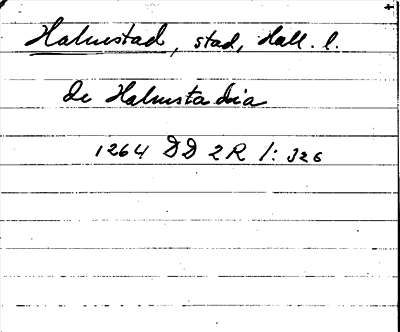 Halmstad, stad, Hall. l.
de Halmstadia
1264 DD 2R 1: 326